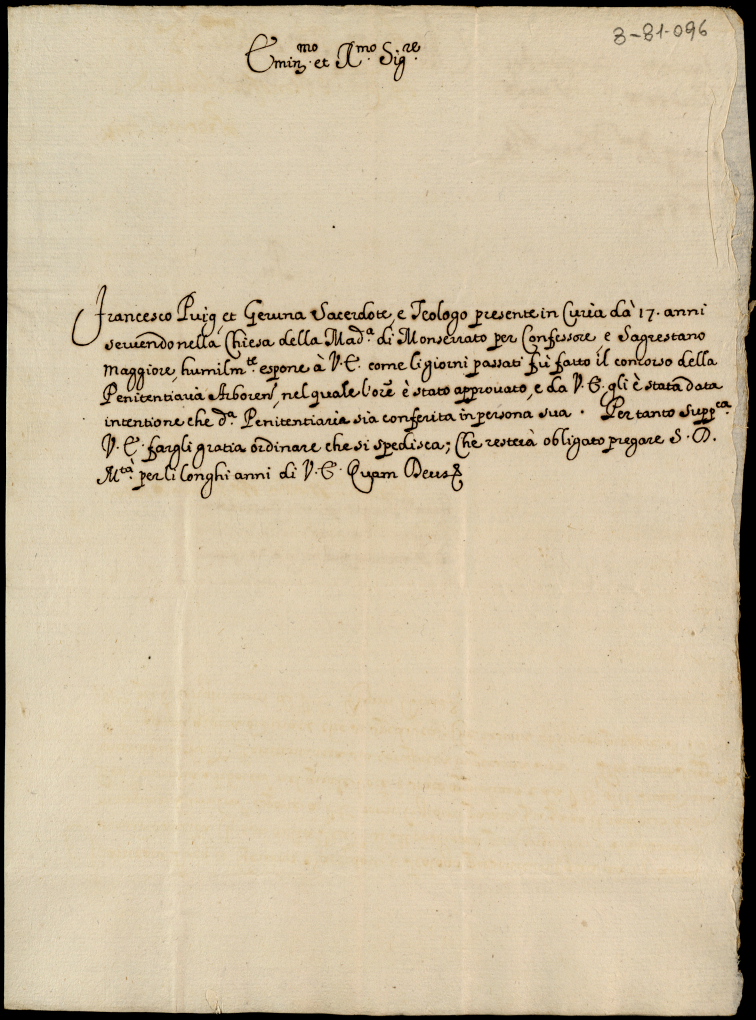 8-81-096
Emin.mo et R.mo Sig.re
Francesco Puig, et Geruna Sacerdote, e Teologo presente in Curia dà 17. anni
seruendo nella Chiesa della Mad.a di Monserrato per Confessore e Sagrestano
maggiore, humilm.te espone à V.E. come li giorni passati fù fatto il concorso della
Penitentiaria Arboren, nel quale l'ore è stato approuato, e da V.E. gli è stata data
intentione che d.a Penitentiaria sia conferita in persona sua. Per tanto supp.ca
V.E. fargli gratia ordinare che si spedisca; Che resterà obligato pregare S.D.
M.tà per li longhi anni di V.E. Quam Deus &